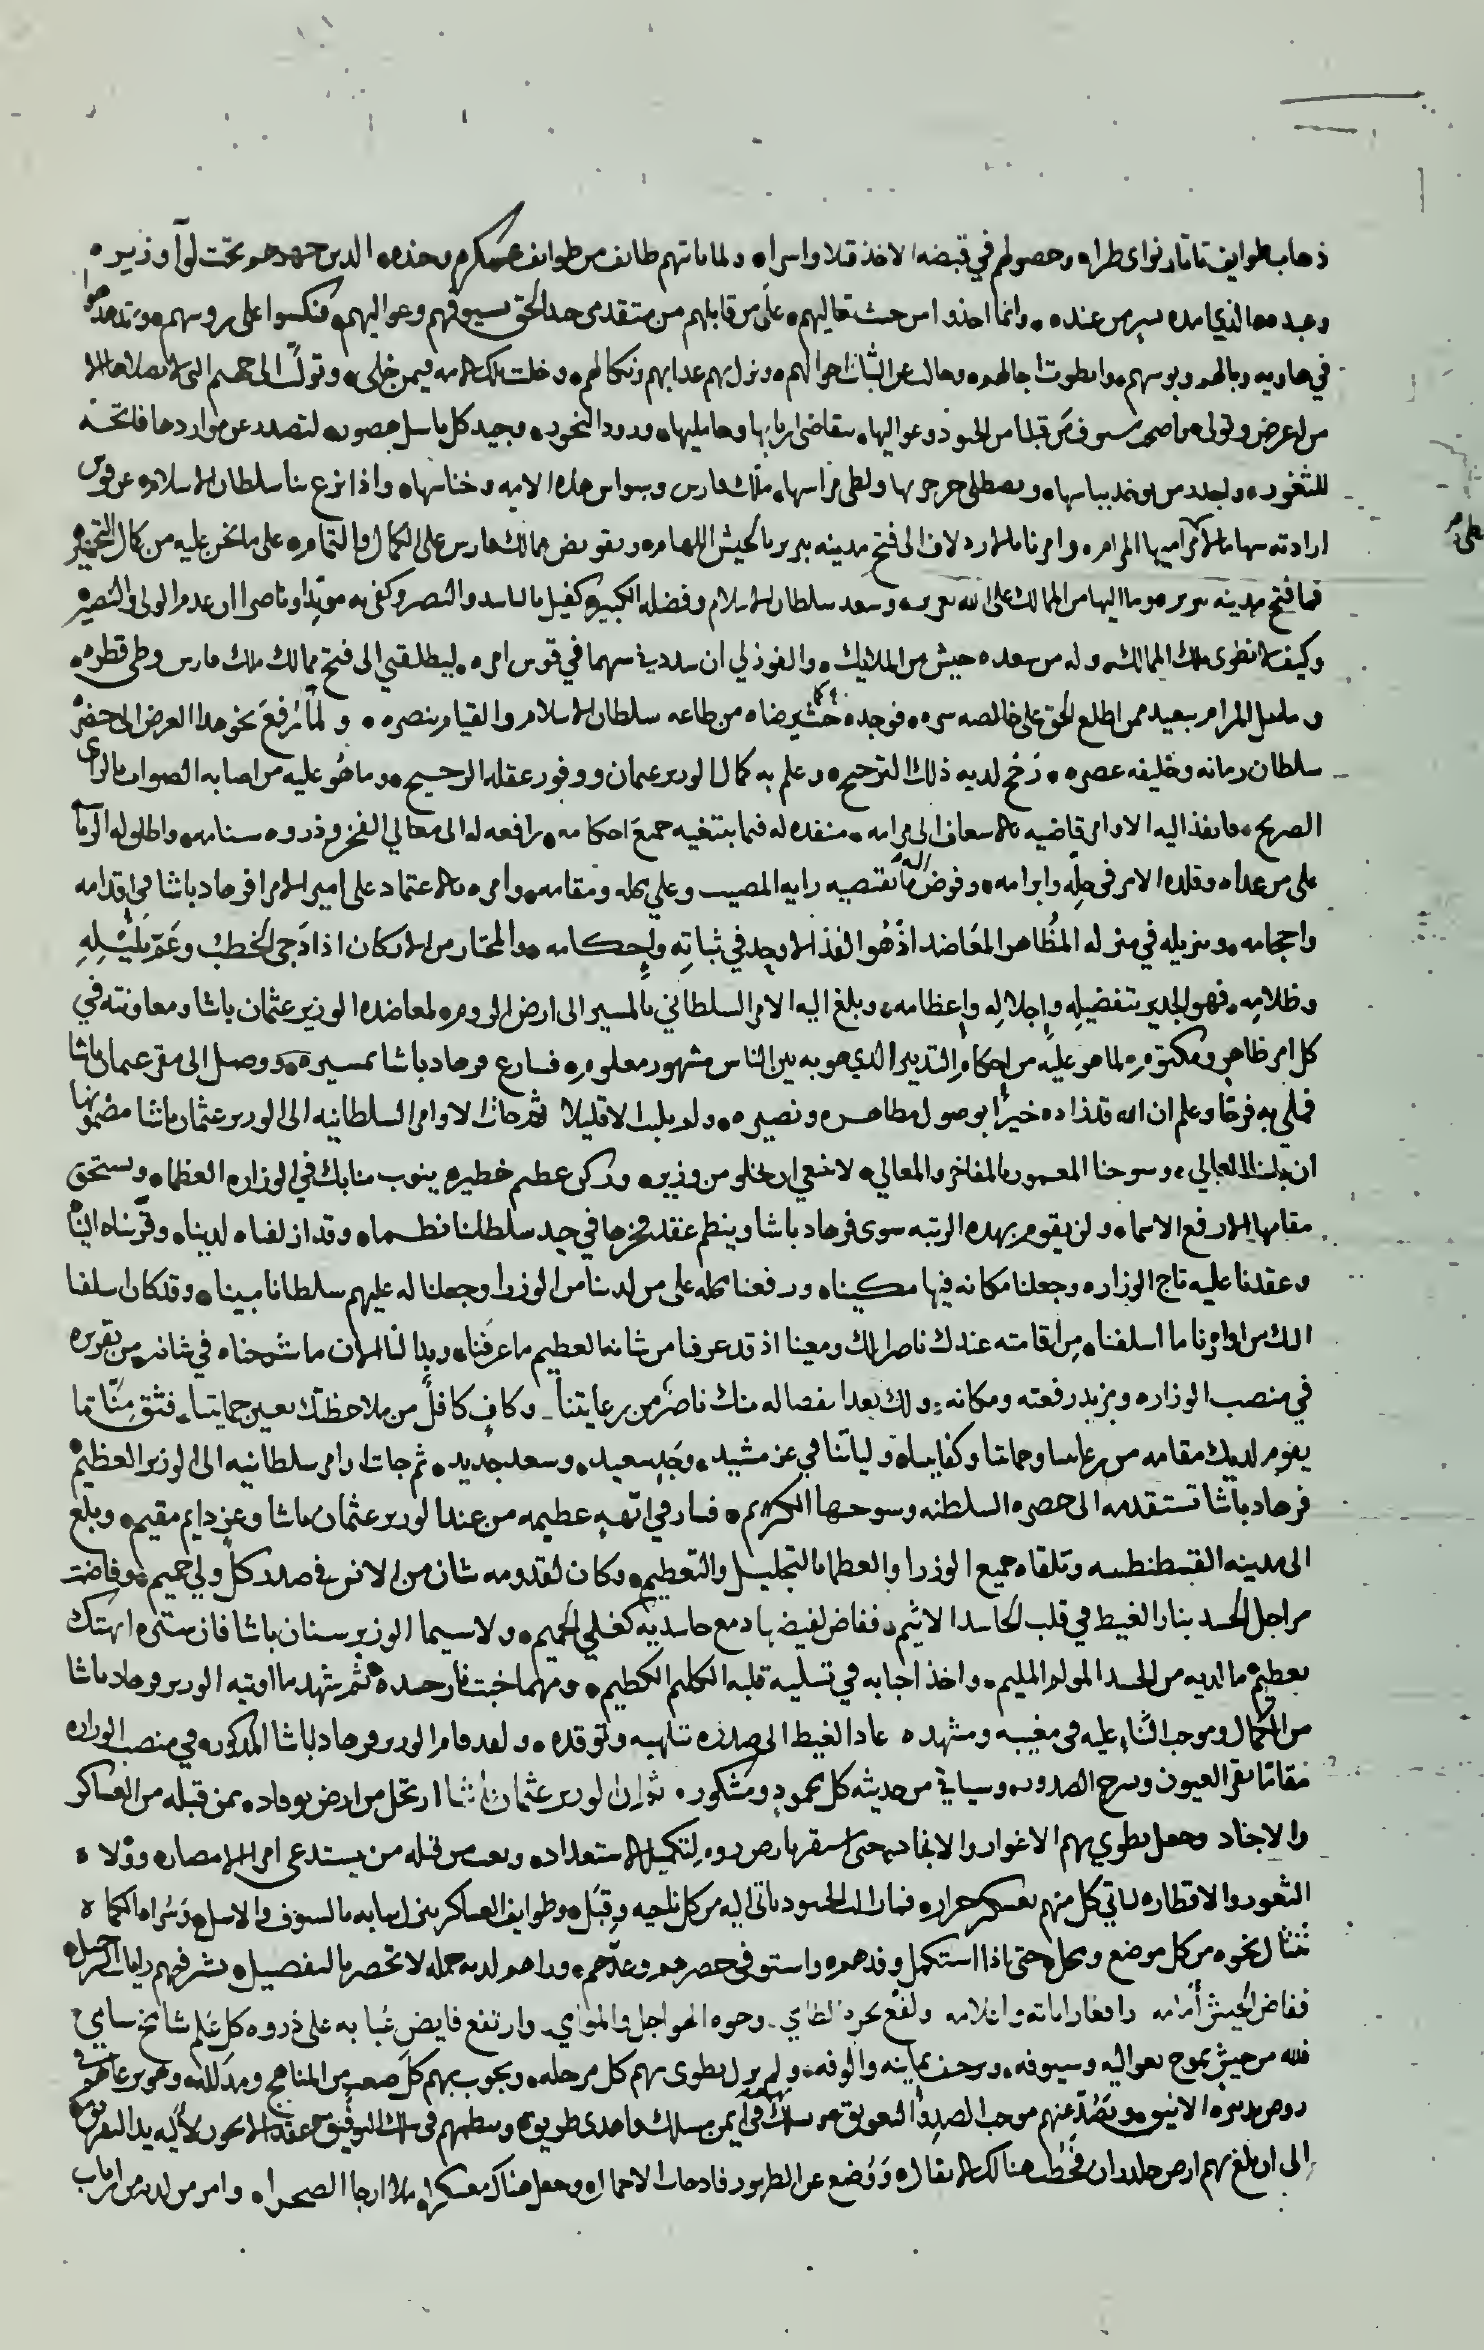 ذهاب طوايف تاتار نواى طراه وحصولهم في قبضه الاخذ قتلا واسراه ولما ماتهم طايف من طوايف عسكرهم وحذه الدين جهدهم تحت لوآ وزيره
وعبده الذي امده بسر من عنده وانما اخذوا من حيث تعاليهم على من قابلهم من متقدمى جند الحق بسيوفهم وعواليهم فنكسوا على روسهم وتدهدهوا
في هاويه وبالهم وبوسهم وانطوت اجالهم وحالت عن الثبات احوالهم ونزل بهم عذابهم ونكالهم وخلت تلك الامه فيمن خلى وتولت الى جهنم التى لا يصلاها الا
من اعرض وتولى سوف من قبلنا من الجنود وعواليها تتقاضى اربابها وحامليها ورود النحور وجيد كل باسل هصور لتصدر عن مواردها فاتحة
للثغور باسها ويصطلى حر حربها ولظى مراسها ملك فارس وسواس هذه الامه وخناسها واذا نزع بنا سلطان الاسلام عن قوس
ارادته سهاما لاكرامه بها المرام وامرنا بالازدلاف الى فتح مدينه تبريز بالجيش اللهام وتفويض ممالك فارس على الكمال والتمام على ما نحن عليه من كمال التجهيز
فما فتح مدينه تبريز وما اليها من الممالك على الله بعزيز وسعد سلطان الاسلام وفضله الكبير كفيل بالتاييد والنصر وكفى به مويدا وناصرا ان عدم الولى والنصير
وكيف لا تطوى تلك الممالك وله من سعده جيش من الملايك والفوز لي ان سددني سهما في قوس امره ليطلقني الى فتح ممالك ملك فارس وطى قطره
وما نيل المرام ببعيد ممن اطلع الحق على خالصه سره فوجده كما يرضاه من طاعه سلطان الاسلام والقيام بنصره ولما رفع نحو هذا العرض الى حضرة
سلطان زمانه وخليفه عصره رجح لديه ذلك الترجيح وعلم به كمال الوزير عثمان ووفور عقله الرجيح وما هو عليه من اصابه الصواب بالراى
الصريح فانفذ اليه الاوامر قاضيه بالاسعاف الى مرامه منفذه له فيما يبتغيه جميع احكامه رافعه له الى معالي الفخر وذروه سنامه واطلق له الزمام
على من عداه وقلده الامر في حلّه وابرامه وفوض اليه ما يقتضيه رايه المصيب وعلي محله ومقامه وامره بالاعتماد على امير الامرا فرهاد باشا في اقدامه
واحجامه وتنزيله في منزله المظاهر المعاضد اذ هو الفذ الاوحد في ثباته وإحكامه والمختار من الاركان اذا دجى الخطب وعَمّ بليلِهِ
وظلامه فهو الجدير بتفضيله وإجلاله وإعظامه وبلغ اليه الامر السلطاني بالمسير الى ارض الروم لمعاضده الوزير عثمان باشا ومعاونته في
كل امر ظاهر ومكتوم لما هو عليه من احكام التدبير الذي هو به بين الناس مشهور معلوم فسارع فرهاد باشا بمسيره ووصل الى مقر عثمان باشا
فملى به فرحا وعلم ان الله قد زاده خيرا بوصول مظاهره ونصيره ولم يلبث الا قليلا ثم جات الاوامر السلطانيه الى الوزير عثمان باشا مضمونها
ان بابنا العالي وسوحنا المعمور بالمفاخر والمعالي لا ينبغي ان يخلو من وزير وركن عظيم خطير ينوب منابك في الوزاره العظما ويستحق
مقامها الارفع الاسما ولن يقوم بهذه الرتبه سوى فرهاد باشا وينظم عقد فخرها في جيد سلطاننا نظما وقد ازلفناه لدينا وقربناه الينا
وعقدنا عليه تاج الوزاره وجعلنا مكانه فيها مكينا ورفعنا محله على من لدينا من الوزرا وجعلنا له عليهم سلطانا مبينا وقد كان سلفا
اليك من اوامرنا ما اسلفنا من اقامته عندك ناصرا لك ومعينا اذ قد عرفنا من شانه العظيم ما عرفنا وبدا لنا الان ما شرحناه في شانه من تقريره
في منصب الوزاره ومزيد رفعته ومكانه ولك بعد انفصاله منك ناصر من رعايتنا وكاف كافل من ملاحظتك بعين حمايتنا فثق مِنّا بما
يقوم لديك مقامه من رعايتنا وحمايتنا وكفايتنا ولياتنا في عز مشيد وجَدٍ سعيد وسعد جديد ثم جات اوامر سلطانيه الى الوزير العظيم
فرهاد باشا تستقدمه الى حضره السلطنه وسوحها الكريم فسار في ابهه عظيمه من عند الوزير عثمان باشا وعز دايم مقيم وبلغ
الى مدينه القسطنطينيه وتلقاه جميع الوزرا والعظما بالتجليل والتعظيم وكان لقدومه شان من الانس في صدر كل ولي حميم وفاضت
مراجل الحسد بنار الغيظ في قلب الحاسد الاثيم ففاض لفيضها دمع حاسديه كغلي الحميم ولا سيما الوزير سنان باشا فان ستره انهتك
بعظيم ما لديه من الحسد المولم المليم واخذ احبابه في تسليه قلبه الكليم الكظيم ومهما خبت نار حسده ثم شهد ما اوتيه الوزير فرهاد باشا
من الكمال وموجب الثناء عليه في مغيبه ومشهده عاد الغيظ الى صدره بتلهبه وتوقده ولقد قام الوزير فرهاد باشا المذكور في منصب الوزاره
مقاما تقر العيون وشرح الصدور وسياتي من حديثه كل محمود ومشكور ثم ان الوزير عثمان باشا ارتحل من ارض بوفاد بمن قبله من العساكر
والاجناد وجعل يطوي بهم الاغوار والانجاد حتى استقر بارض روم لتكميل الاستعداد وبعث من قبله من يستدعى امرا الامصار وولاه
الثغور والاقطار لياتي كل منهم بعسكر جرار فما زالت الجنود تاتى اليه من كل ناحيه وقبل وطوايف العساكر بالسيوف والاسل وسراه الكماه
تنثال نحوه من كل موضع ومحل حتى اذا استكمل وفدهم واستوفى حصرهم وعدهم وراهم لديه جمله لا تحصر بالتفصيل نشر فيهم رايات الرحيل
ففاض الجيش أمامه رافعا راياته واعلامه ولفع بحره الطامي وجوه الهواجل والموامي وارتفع فايض غبابه على ذروه كل علم شامخ سامي
فلله من جيش يموج بعواليه وسيوفه ويرجف بمأينه والوفه ولم يزل يطوى بهم كل مرحله ويجوب بهم كل صعب من المناهج ومذلله وهو يرعاهم في
روض تدبيره الانيق ويصد عنهم موجب الصد والتعويق سالكا بهم في أيمن مسلك واهدى طريق وينظمهم في سلك التوفيق عقدا
الى ان بلغ بهم ارض جلدران فحُطت هنالك الاثقال ووضع عن الظهور فادحات الاحمال وجعل هناك معسكرا ملا ارجا الصحرا وامر من لديه من ارباب